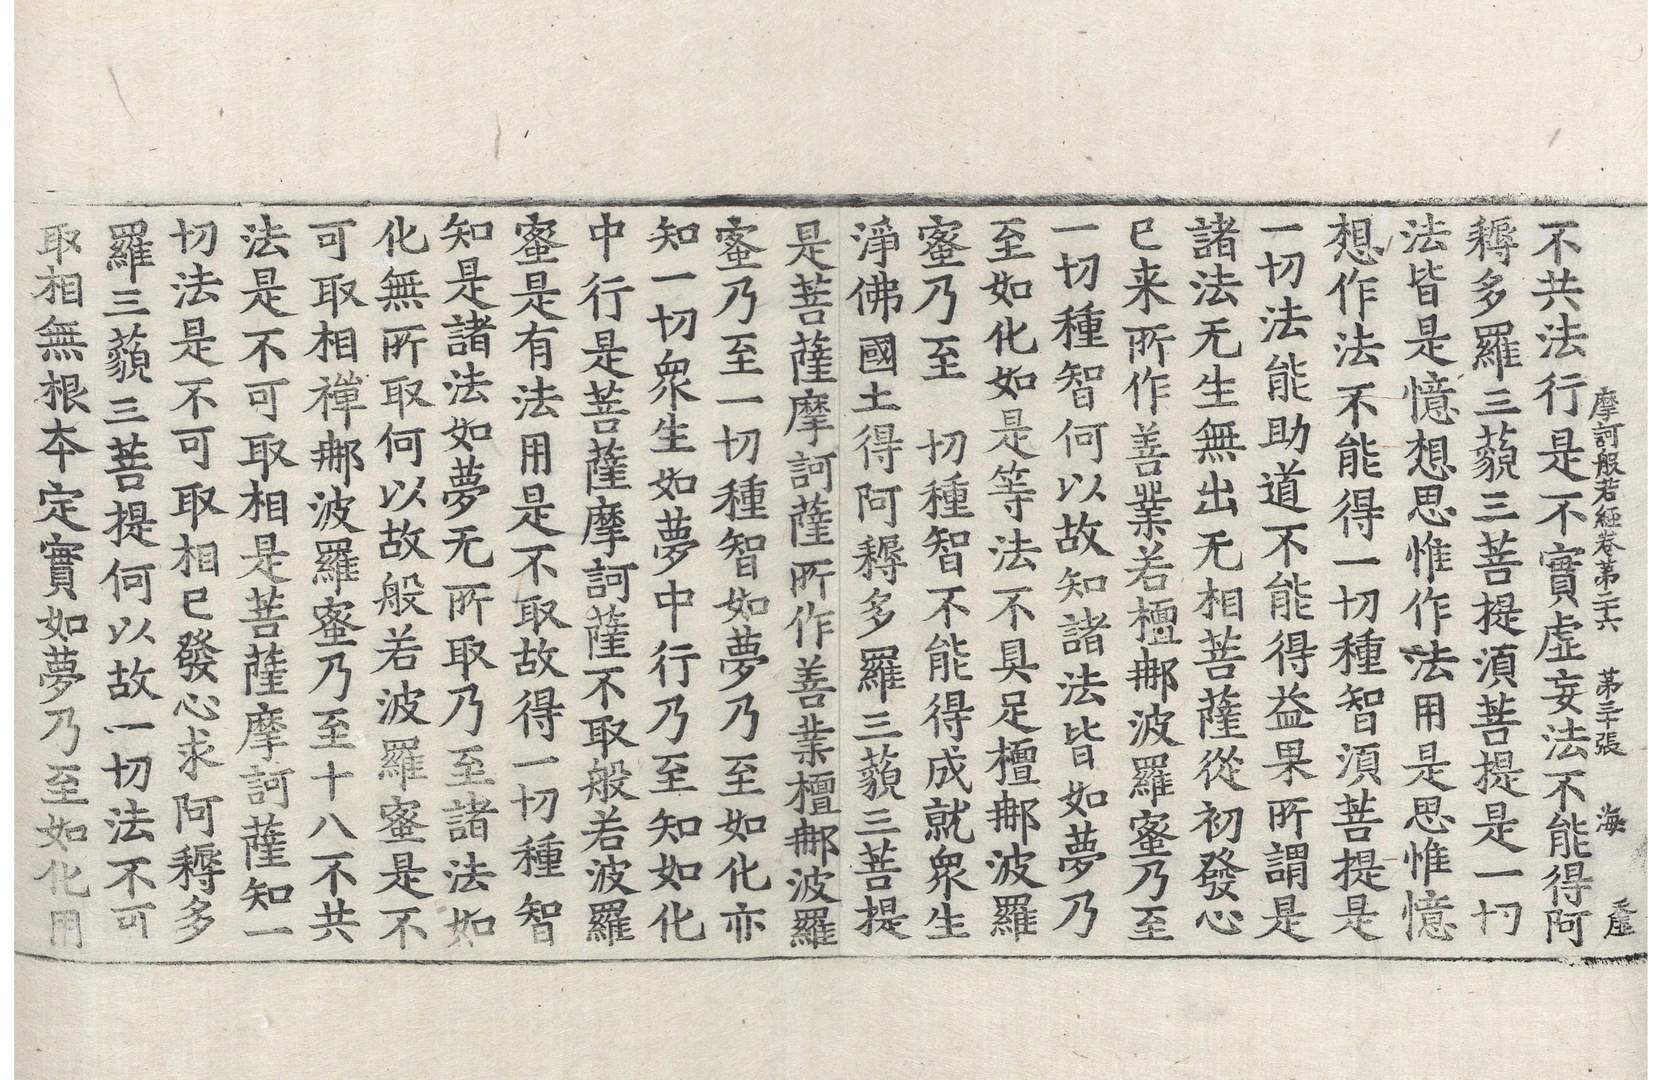 摩訶般若經卷第二十六　第三十張　海
不共法行是不實虛妄法不能得阿
耨多羅三藐三菩提湏菩提是一切
法皆是憶想思惟作法用是思惟憶
想作法不能得一切種智湏菩提是
一切法能助道不能得益果所謂是
諸法无生無出无相菩薩從初發心
已来所作善業若檀那波羅蜜乃至
一切種智何以故知諸法皆如夢乃
至如化如是等法不具足檀那波羅
蜜乃至　切種智不能得成就衆生
淨佛國土得阿耨多羅三藐三菩提
是菩薩摩訶薩所作善業檀那波羅
蜜乃至一切種智如夢乃至如化亦
知一切衆生如夢中行乃至知如化
中行是菩薩摩訶薩不取般若波羅
蜜是有法用是不取故得一切種智
知是諸法如夢无所取乃至諸法如
化無所取何以故般若波羅蜜是不
可取相禪那波羅蜜乃至十八不共
法是不可取相是菩薩摩訶薩知一
切法是不可取相已發心求阿耨多
羅三藐三菩提何以故一切法不可
取相無根本定實如夢乃至如化用